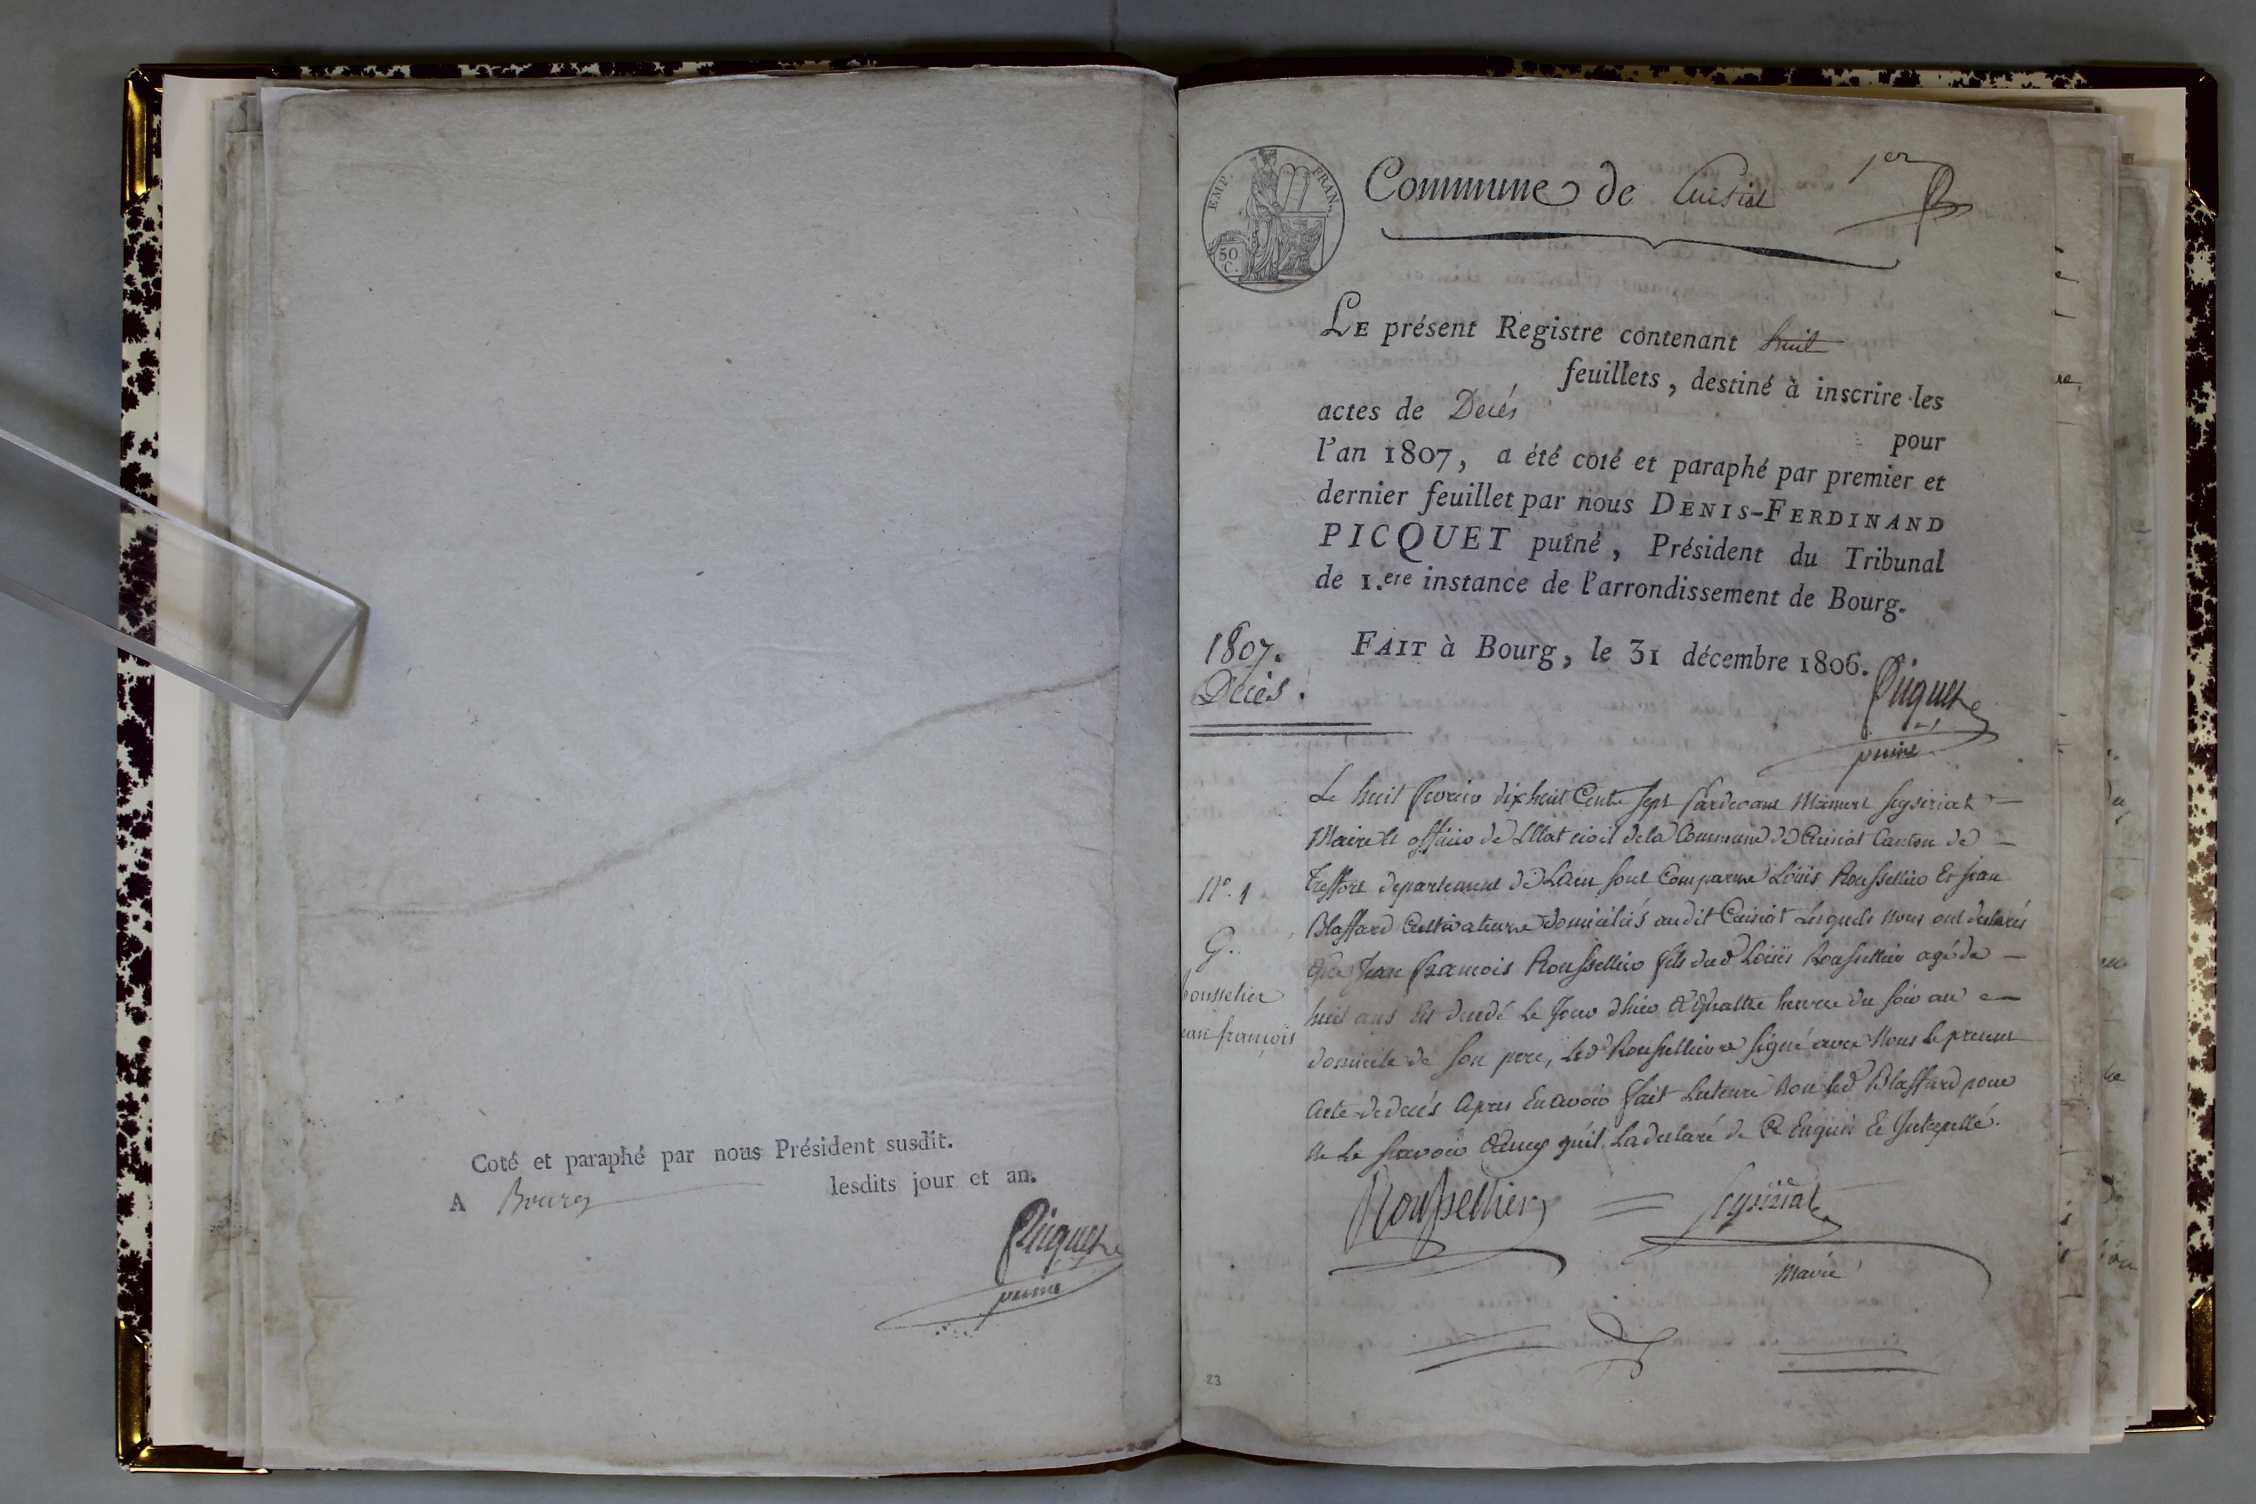 Coté et paraphé par nous Président susdit.
A Bourg lesdits jour et an.
Picquet
puiné
EMP. FRAN.
50
C.
Commune de Cuisiat
1er
LE présent Registre contenant huit
feuillets, destiné à inscrire les
actes de Decés
pour
l'an 1807, a été coté et paraphé par premier et
dernier feuillet par nous DENIS-FERDINAND
PICQUET puîné, Président du Tribunal
de 1.ere instance de l'arrondissement de Bourg.
FAIT à Bourg, le 31 décembre 1806.
Picquet
puiné
1807.
Décès.
Le huit fevrier dix huit Cents Sept pardevant Mamert
Maire et officier de Letat civil de la Commune de Cuisiat Canton de
Treffort departement de Lain sont Comparus Loüis Rousselier Et Jean
Blassard Cultivateurs domiciliés audit Cuisiat Lesquels nous ont declarés
que Jean francois Rousselier fils dud Loüis Rousselier agé de
huit ans Est decedé Le Jour dhier a quattre heures du soir au
domicile de son pere, Led Rousselier a signé avec Nous Le present
acte de decés apres En avoir fait Lecture Non Led Blassard pour
ne Le scavoir quil La declaré de ce Enquis Et Interpellé.
N°. 1
G.
ousselier
ean françois
Rousselier
Maire
23